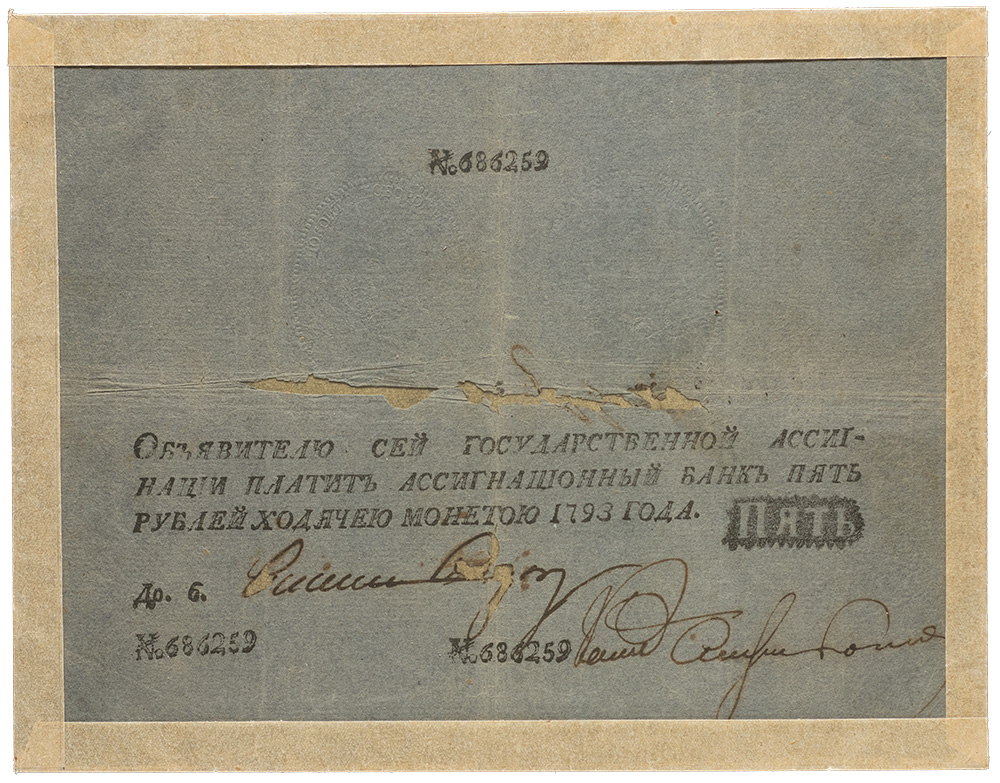 №686259
Объявителю сей государственной ассиг-
націи платитъ ассигнаціонный банкъ пять
рублей ходячею монетою 1793 года.
ПЯТЬ
До. 6.
№686259 №686259